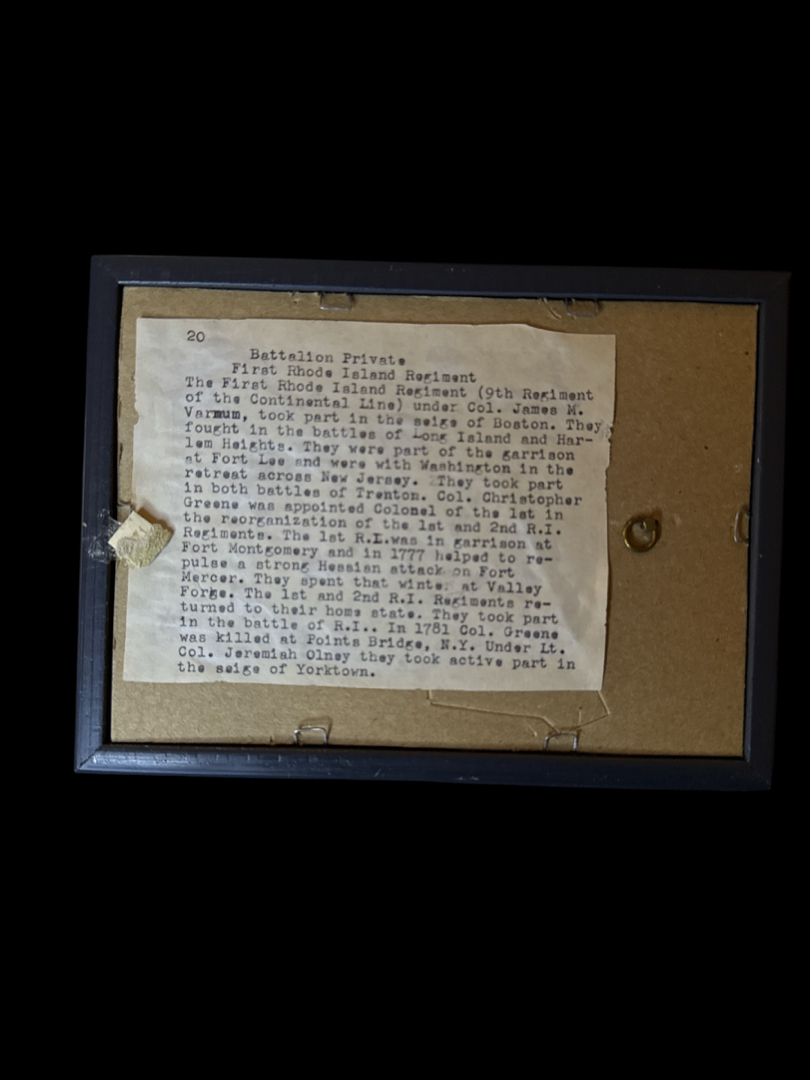 20
Battalion Private
First Rhode Island Regiment
The First Rhode Island Regiment (9th Regiment
of the Continental Line) under Col. James M.
Varmum, took part in the seige of Boston. They
fought in the battles of Long Island and Har-
lem Heights. They were part of the garrison
at Fort Lee and were with Washington in the
retreat across New Jersey. They took part
in both battles of Trenton. Col. Christopher
Greene was appointed Colonel of the 1st in
the reorganization of the 1st and 2nd R.I.
Regiments. The 1st R.I.was in garrison at
Fort Montgomery and in 1777 helped to re-
pulse a strong Hessian attack on Fort
Mercer. They spent that winter at Valley
Forge. The 1st and 2nd R.I. Regiments re-
turned to their home state. They took part
in the battle of R.I.. In 1781 Col. Greene
was killed at Points Bridge, N.Y. Under Lt.
Col. Jeremiah Olney they took active part in
the seige of Yorktown.